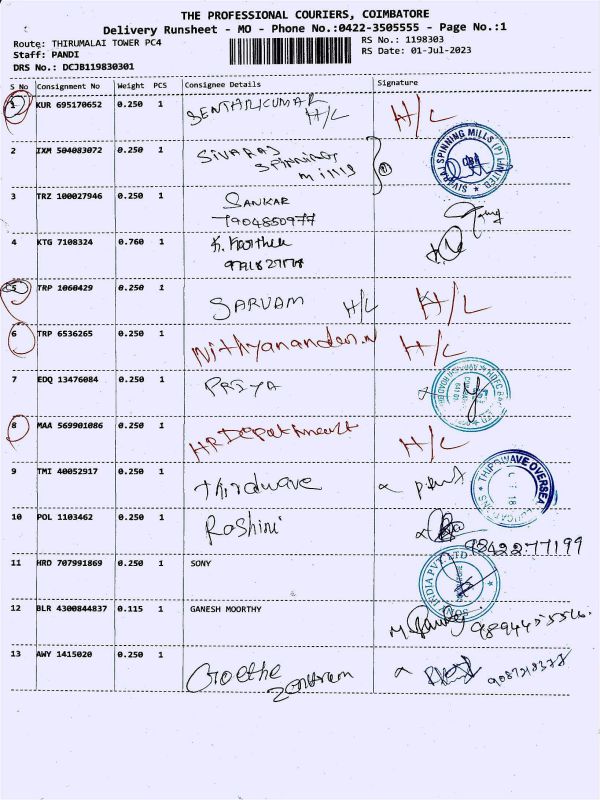 THE PROFESSIONAL COURIERS, COIMBATORE
Delivery Runsheet - MO - Phone No.:0422-3505555 - Page No.:1
Route: THIRUMALAI TOWER PC4
RS No.: 1198303
Staff: PANDI
RS Date: 01-Jul-2023
DRS No.: DCJB119830301
S No Consignment No Weight PCS Consignee Details Signature
1 KUR 695170652 0.250 1 SENTARKUMAR H/L H/L
2 IXM 504083072 0.250 1 SIVARAJ SPINNING mills
SIVARAJ SPINNING MILLS (P) LIMITED
3 TRZ 100027946 0.250 1 SANKAR
7904850977
4 KTG 7108324 0.760 1 K. Karthee
5 TRP 1060429 0.250 1 SARVAM H/L H/L
6 TRP 6536265 0.250 1 Nithyanandan.N H/L
7 EDQ 13476084 0.250 1 PRIYA
8 MAA 569901086 0.250 1 HR Department H/L
9 TMI 40052917 0.250 1 thirdwave
THIRDWAVE OVERSEA
10 POL 1103462 0.250 1 Roshini
9842277199
11 HRD 707991869 0.250 1 SONY
INDIA PVT LTD
12 BLR 4300844837 0.115 1 GANESH MOORTHY
13 AWY 1415020 0.250 1 Goethe
Zentrum